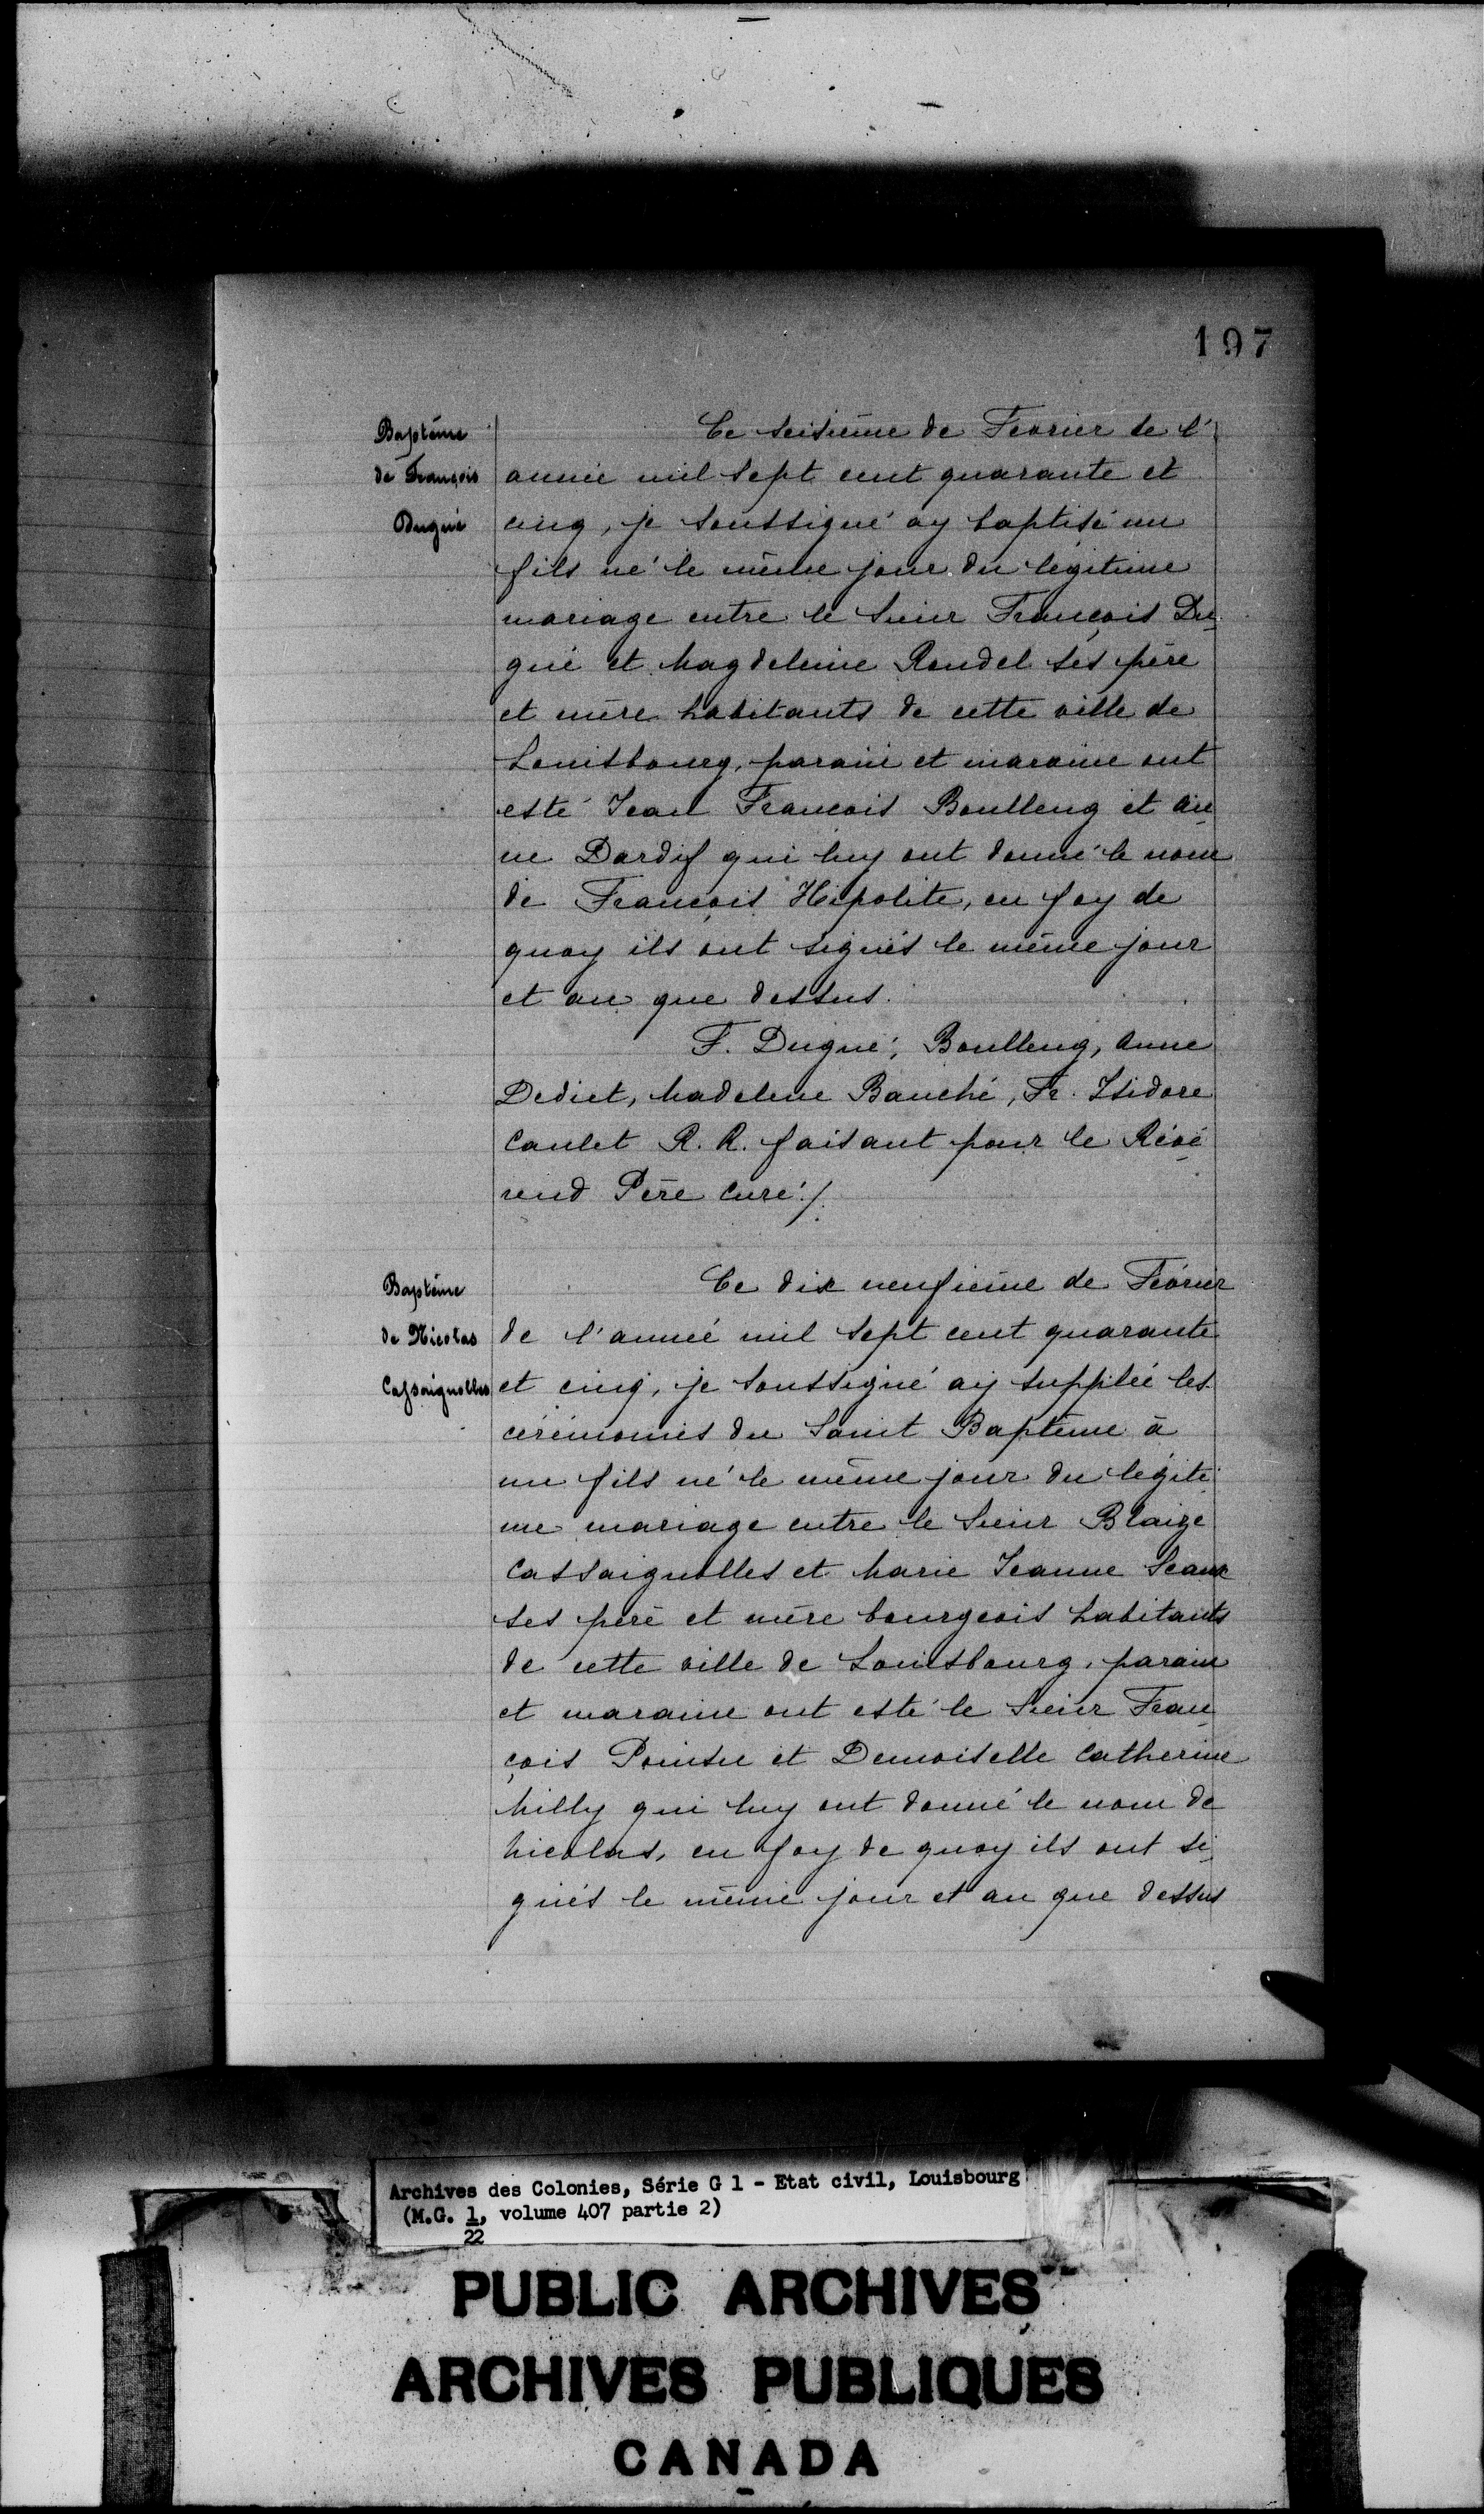 197
Baptême
de François
Dugué
Ce seisième de Fevrier de l'
année mil sept cent quarante et
cinq, je soussigné ay baptisé un
fils né le même jour du légitime
mariage entre le Sieur François Du_
gué et Magdeleine Rondel ses père
et mère habitants de cette ville de
Louisbourg, parain et maraine ont
esté Jean Francois Boulleng et An_
ne Dardif qui luy ont donné le nom
de François Hipolite, en foy de
quoy ils ont signés le même jour
et an que dessus.
F. Dugué, Boulleng, Anne
Dediet, Madelene Bauché, Fr. Isidore
Caulet R. R. faisant pour le Révé_
rend Père curé./.
Baptême
de Nicolas
Cassaignolles
Ce dix neufième de Février
de l'année mil sept cent quarante
et cinq, je soussigné ay supplée les
cérémonies du Saint Baptême à
un fils né le même jour du légiti_
me mariage entre le Sieur Blaize
Cassaignolles et Marie Jeanne Seaux
ses père et mère bourgeois habitants
de cette ville de Louisbourg, parain
et maraine ont esté le Sieur Fran_
çois Pointu et Demoiselle Catherine
Milly qui luy ont donné le nom de
Nicolas, en foy de quoy ils ont si_
gnés le même jour et an que dessus
Archives des Colonies, Série G 1 - Etat civil, Louisbourg
(M.G. 1, volume 407 partie 2)
22
PUBLIC ARCHIVES
ARCHIVES PUBLIQUES
CANADA